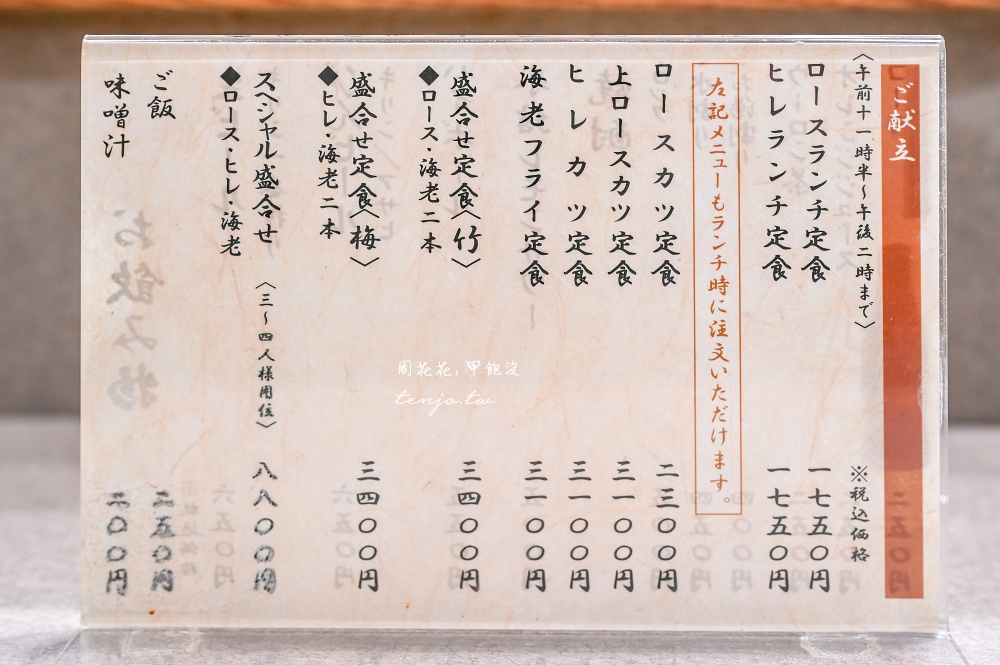 ご献立
〈午前十一時半〜午後二時まで〉 ※税込価格
ロースランチ定食 一七五〇円
ヒレランチ定食 一七五〇円
左記メニューもランチ時に注文いただけます。
ロースカツ定食 二三〇〇円
上ロースカツ定食 三一〇〇円
ヒレカツ定食 三一〇〇円
海老フライ定食 三一〇〇円
盛合せ定食〈竹〉 三四〇〇円
◆ロース・海老二本
盛合せ定食〈梅〉 三四〇〇円
◆ヒレ・海老二本
スペシャル盛合せ 〈三〜四人様用位〉 八八〇〇円
◆ロース・ヒレ・海老
ご飯 二五〇円
味噌汁 二〇〇円
周花花，甲飽沒
tenjo.tw
お飲み物